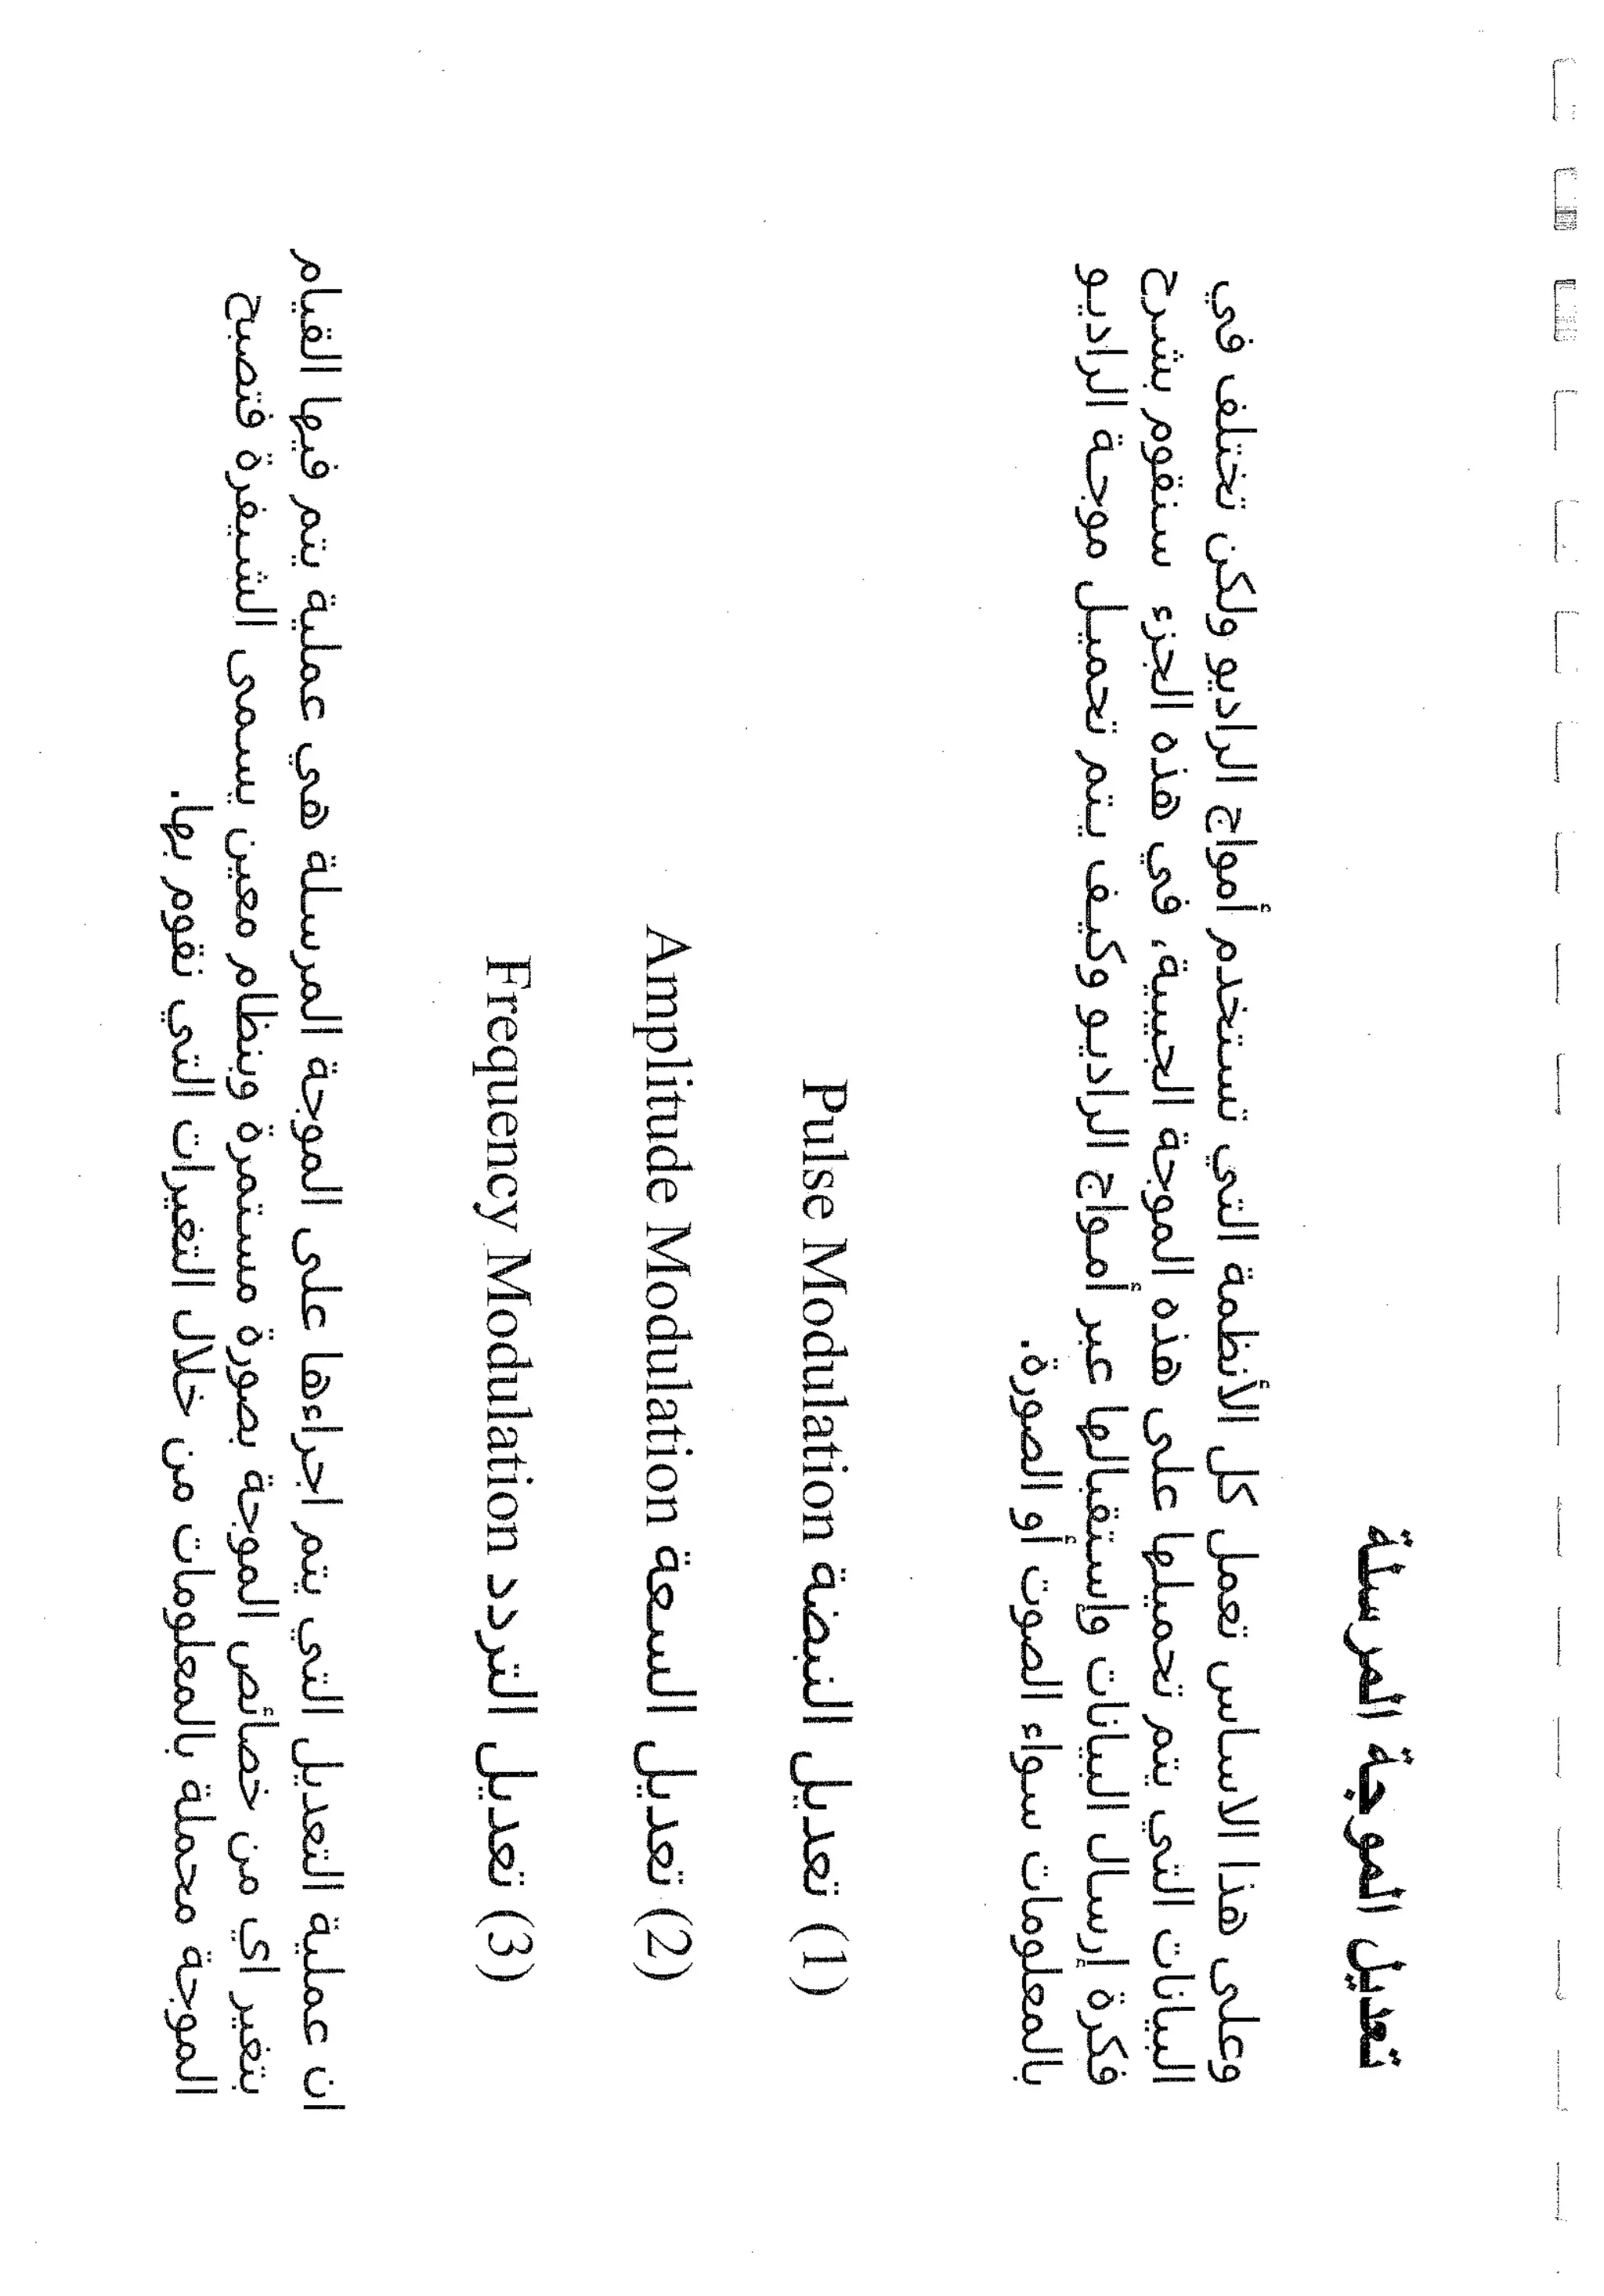 تعديل الموجة المرسلة
وعلى هذا الاساس تعمل كل الأنظمة التي تستخدم أمواج الراديو ولكن تختلف في
البيانات التي يتم تحميلها على هذه الموجة الجيبية، في هذه الجزء سنقوم بشرح
فكرة إرسال البيانات وإستقبالها عبر أمواج الراديو وكيف يتم تحميل موجة الراديو
بالمعلومات سواء الصوت أو الصورة.
(1) تعديل النبضة Pulse Modulation
(2) تعديل السعة Amplitude Modulation
(3) تعديل التردد Frequency Modulation
ان عملية التعديل التي يتم اجراءها على الموجة المرسلة هي عملية يتم فيها القيام
بتغير اي من خصائص الموجة بصورة مستمرة وبنظام معين يسمى الشيفرة فتصبح
الموجة محملة بالمعلومات من خلال التغيرات التي نقوم بها.